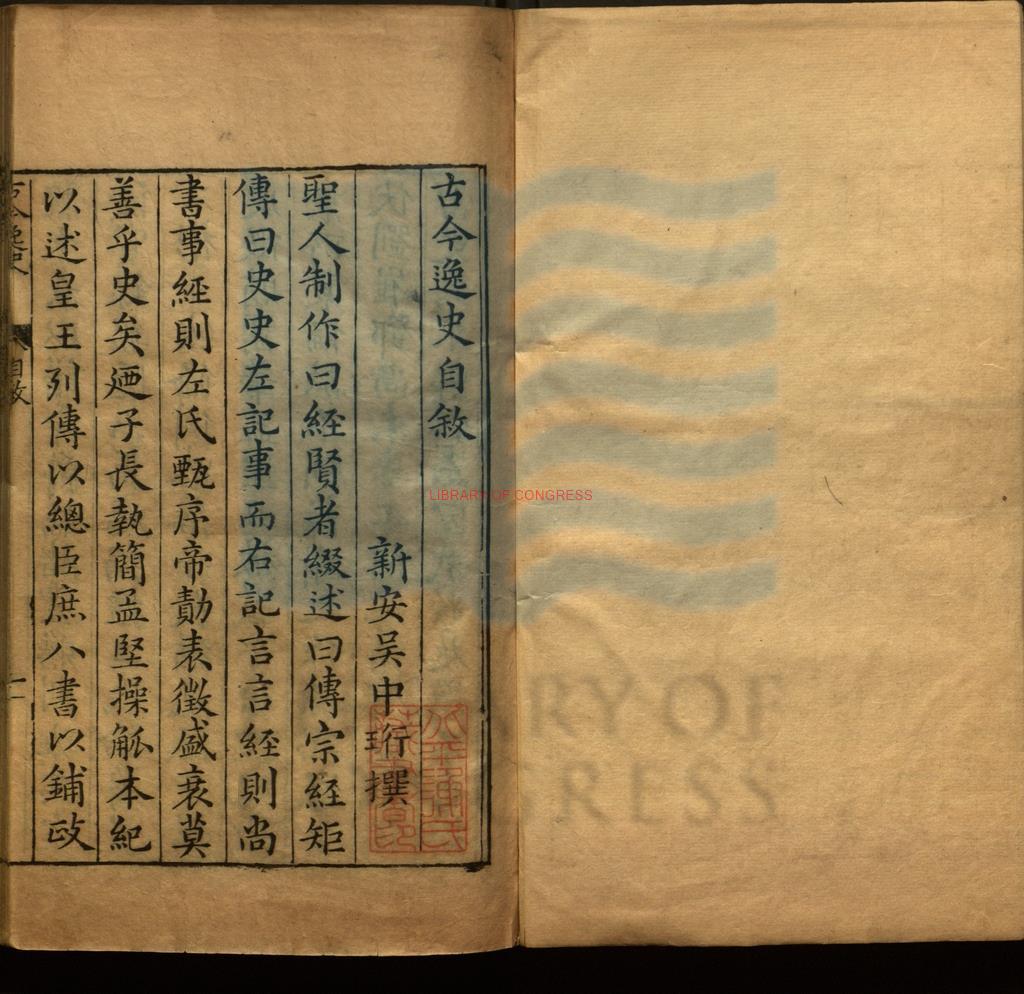 古今逸史自敘
新安吴中珩撰
聖人制作曰經賢者綴述曰傳宗經矩
傳曰史史左記事而右記言言經則尚
書事經則左氏甄序帝勣表徵盛衰莫
善乎史矣廼子長執簡孟堅操觚本紀
以述皇王列傳以總臣庶八書以鋪政
古今逸史 自敘 一
LIBRARY OF CONGRESS